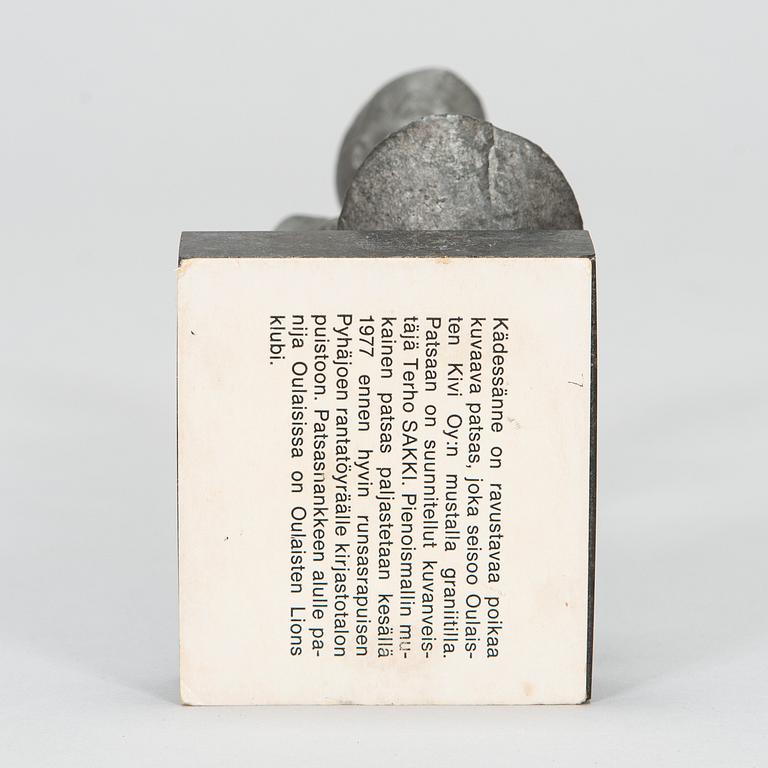 Kädessänne on ravustavaa poikaa
kuvaava patsas, joka seisoo Oulais-
ten Kivi Oy:n mustalla graniitilla.
Patsaan on suunnitellut kuvanveis-
täjä Terho SAKKI. Pienoismallin mu-
kainen patsas paljastetaan kesällä
1977 ennen hyvin runsasrapuisen
Pyhäjoen rantatöyräälle kirjastotalon
puistoon. Patsashankkeen alulle pa-
nija Oulaisissa on Oulaisten Lions
klubi.